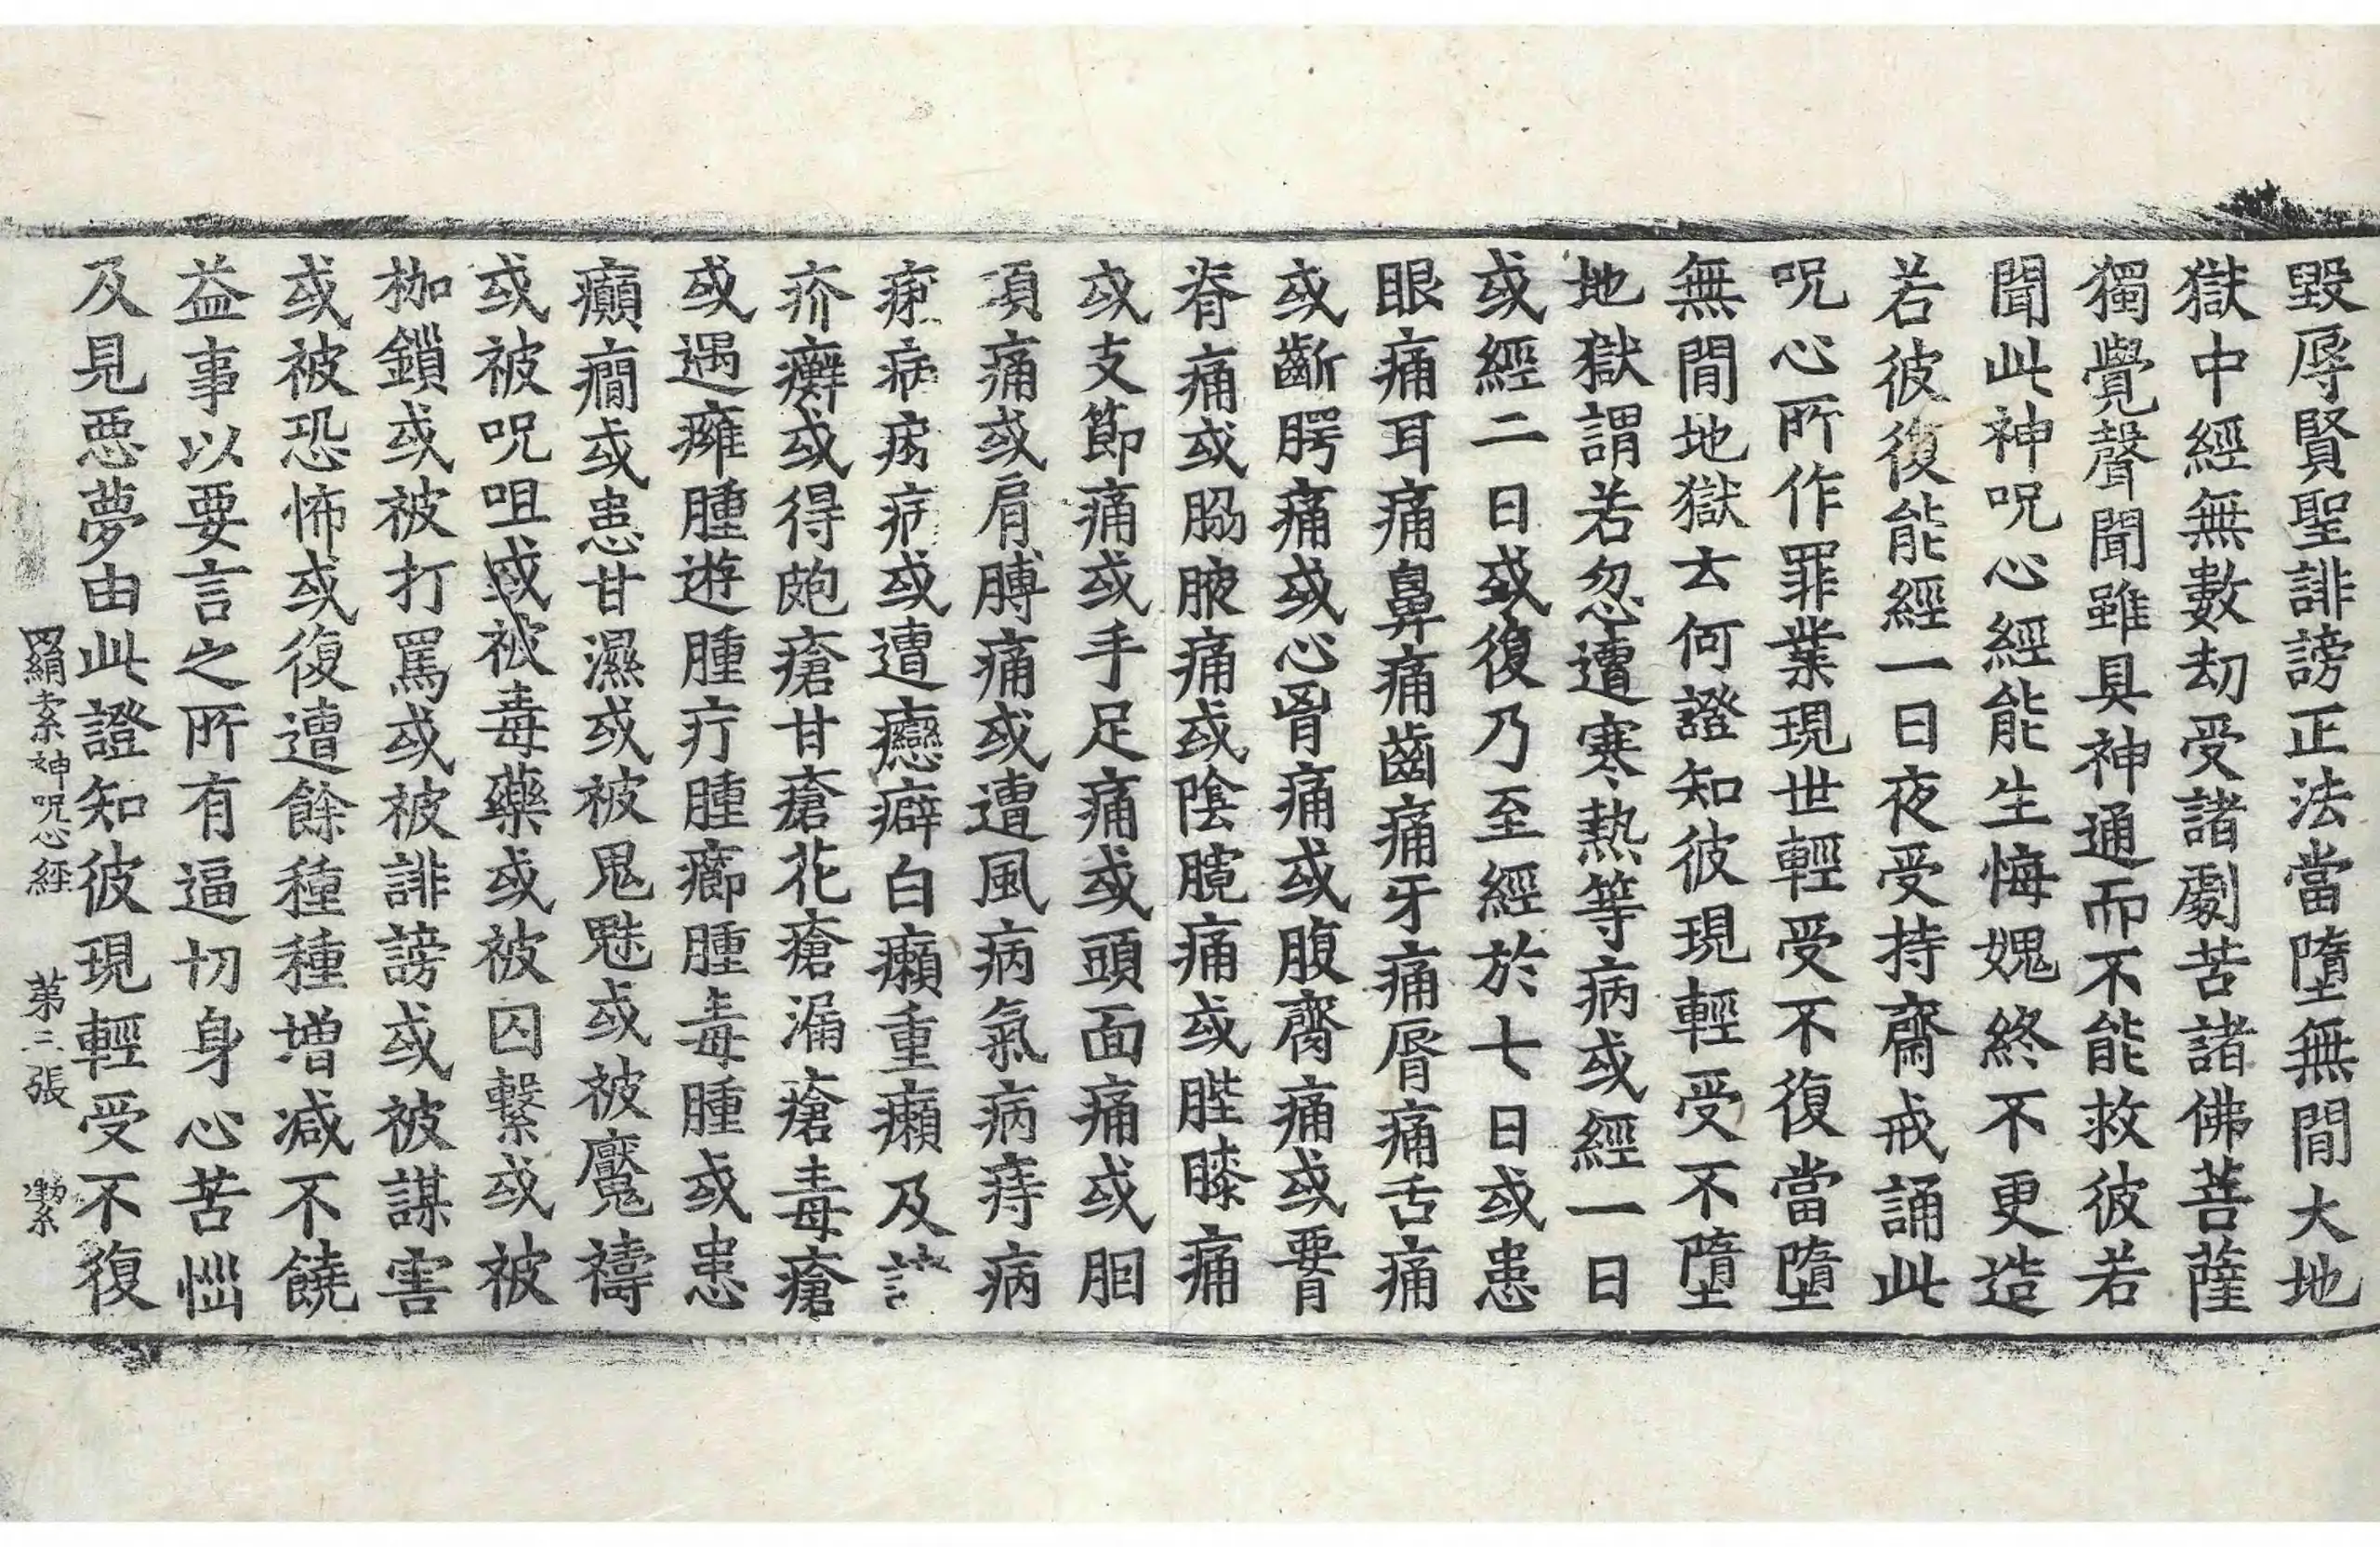 毀辱賢聖誹謗正法當墮無閒大地
獄中經無數劫受諸劇苦諸佛菩薩
獨覺聲聞雖具神通而不能救彼若
聞此神呪心經能生悔媿終不更造
若彼復能經一日夜受持齋戒誦此
呪心所作罪業現世輕受不復當墮
無閒地獄云何證知彼現輕受不墮
地獄謂若忽遭寒熱等病或經一日
或經二日或復乃至經於七日或患
眼痛耳痛鼻痛齒痛牙痛脣痛舌痛
或齗腭痛或心胷痛或腹齎痛或䙅痛
脊痛或脇腋痛或陰臗痛或髀膝痛
或支節痛或手足痛或頭面痛或胭
項痛或肩膊痛或遭風病氣病痔病
病或遭癋癖白癩重癩及
疥癬或得皰瘡甘瘡花瘡漏瘡毒瘡
或遇癰腫遊腫疔腫癤腫毒腫或患
癲癎或患甘濕或被鬼魅或被魘禱
或被呪咀或被毒藥或被囚繫或被
枷鎖或被打罵或被誹謗或被謀害
或被恐怖或復遭餘種種增減不饒
益事以要言之所有逼切身心苦惱
及見惡夢由此證知彼現輕受不復
罥索神呪心經 第三張